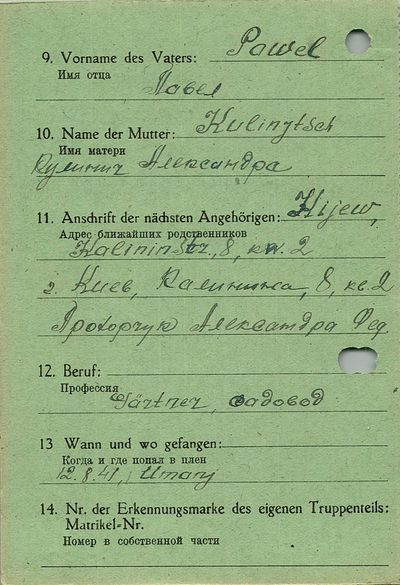 9. Vorname des Vaters: Pawel
Имя отца
Павел
10. Name der Mutter: Kulinytsch
Имя матери
Кулинич Александра
11. Anschrift der nächsten Angehörigen: Kijew,
Адрес ближайших родственников
Kalininstr., 8, kw. 2
г. Киев, Калинина, 8, кв. 2
Прохорчук Александра Фед.
12. Beruf:
Профессия
Gärtner, садовод
13 Wann und wo gefangen:
Когда и где попал в плен
12.8.41, Umanj
14. Nr. der Erkennungsmarke des eigenen Truppenteils:
Matrikel-Nr.
Номер в собственной части